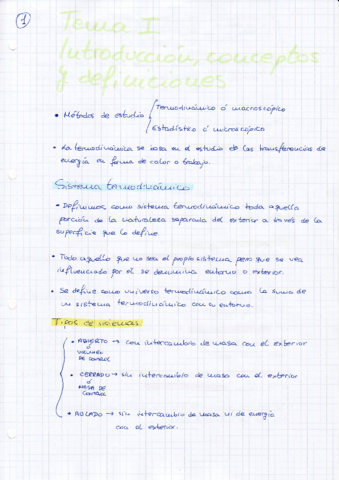 1
Tema I
Introducción, conceptos
y definiciones
• Métodos de estudio { Termodinámico ó macroscópico
Estadístico ó microscópico
• La termodinámica se basa en el estudio de las transferencias de
energía en forma de calor o trabajo.
Sistema termodinámico
• Definimos como sistema termodinámico toda aquella
porción de la naturaleza separada del exterior a través de la
superficie que lo define
• Todo aquello que no sea el propio sistema, pero que se vea
influenciado por él se denomina entorno o exterior.
• Se define como universo termodinámico como la suma de
un sistema termodinámico con su entorno.
Tipos de sistemas
• ABIERTO → con intercambio de masa con el exterior
ó
VOLUMEN
DE CONTROL
• CERRADO → sin intercambio de masa con el exterior
ó
MASA DE
CONTROL
• AISLADO → sin intercambio de masa ni de energía
con el exterior.